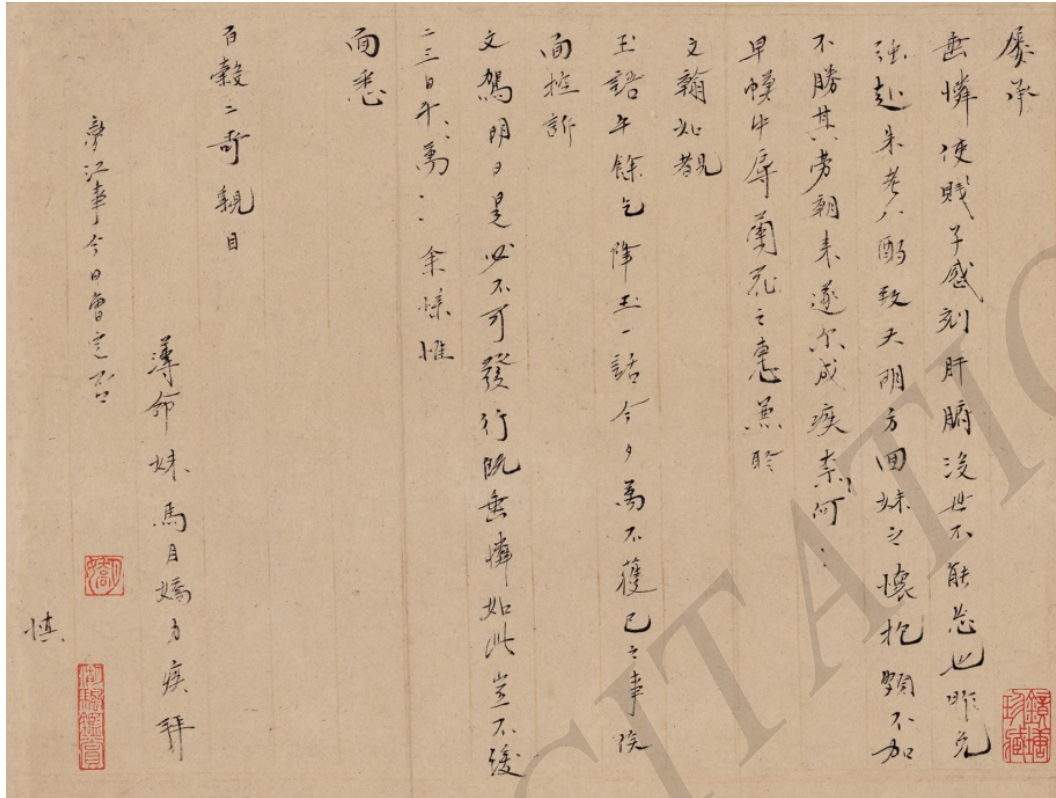 屢承
垂憐使賤子感刻肝腑沒世不能忘也昨勉
強起朱老八酌致天明方回妹之懷抱頗不加
不勝其勞朝來遂尔成疾柰何柰何
早幙中辱蘭花之惠兼聆
文翰如覩
玉語午餘乞降玉一話今夕為不獲已之事俟
面控訴
文駕明日是必不可發行既垂憐如此豈不緩
二三日乎千萬千萬余悰惟
面悉
百穀二哥親目
薄命妹馬月嬌力疾拜
今日會定否
慎
CITATIO